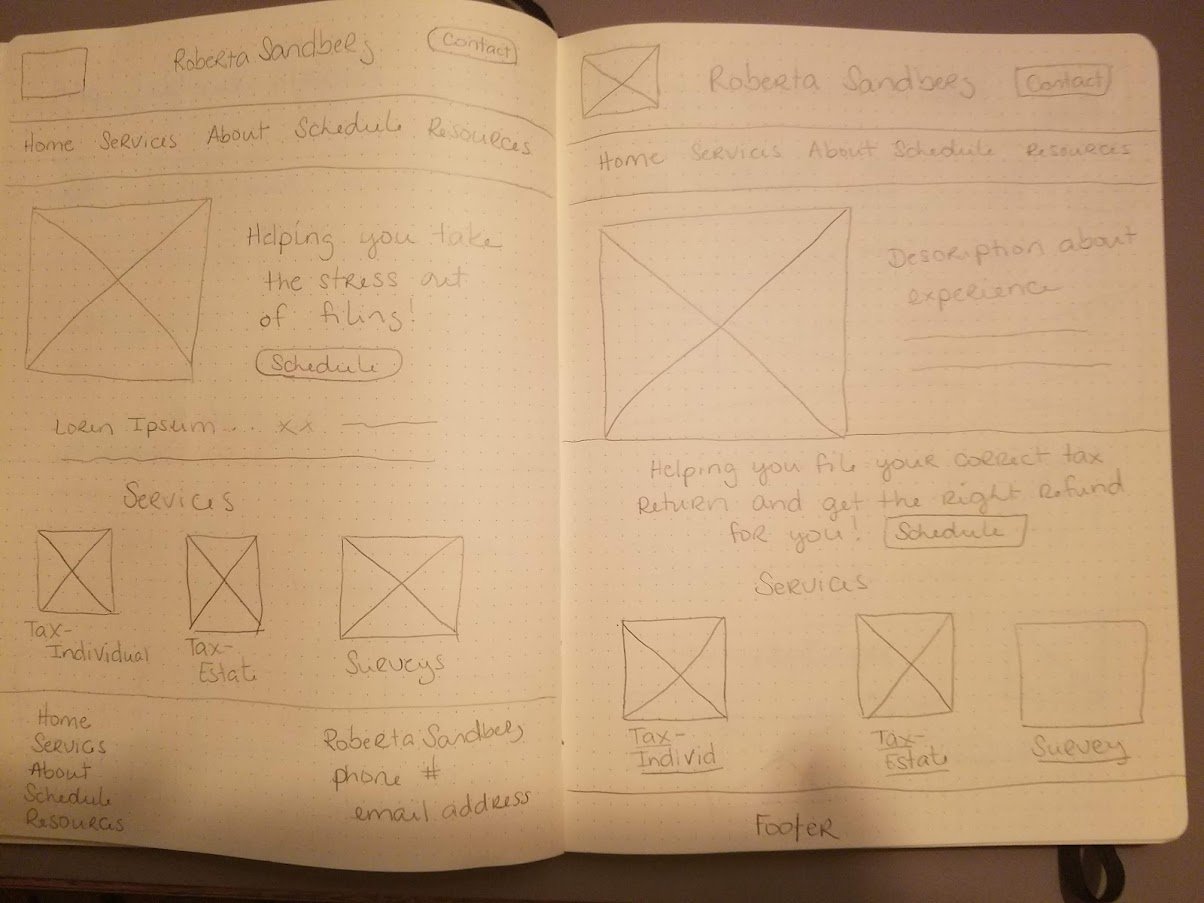 Roberta Sandberg
Contact
Home Services About Schedule Resources
Helping you take
the stress out
of filing!
Schedule
Lorem Ipsum... xx
Services
Tax-
Individual
Tax-
Estate
Surveys
Home
Services
About
Schedule
Resources
Roberta Sandberg
phone #
email address
Roberta Sandberg
Contact
Home Services About Schedule Resources
Description about
experience
Helping you file your correct tax
return and get the right refund
for you! Schedule
Services
Tax-
Individ
Tax-
Estate
Survey
Footer